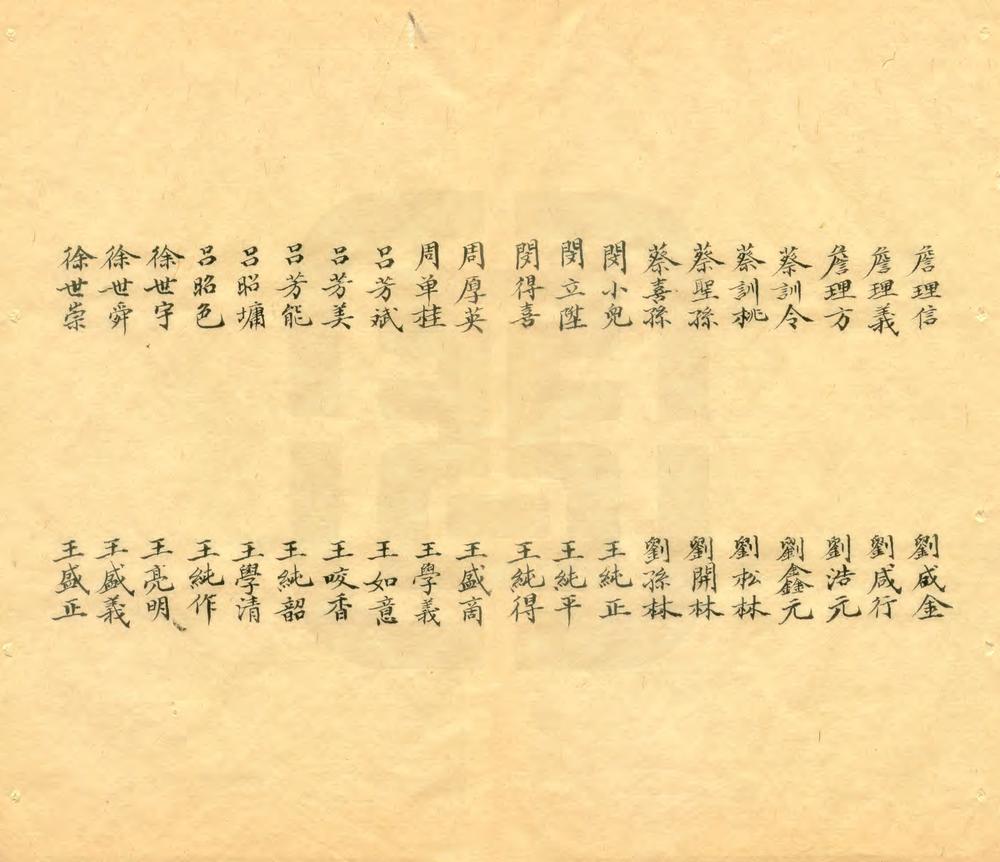 詹理信
詹理義
詹理方
蔡訓令
蔡訓桃
蔡聖孫
蔡喜孫
閔小兒
閔立陞
閔得喜
周厚英
周单桂
呂芳斌
呂芳美
呂芳能
呂昭墉
呂昭色
徐世宇
徐世舜
徐世崇
劉咸金
劉咸行
劉浩元
劉鑫元
劉松林
劉開林
劉孫林
王純正
王純平
王純得
王盛商
王學義
王如意
王咬香
王純韶
王學清
王純作
王亮明
王盛義
王盛正